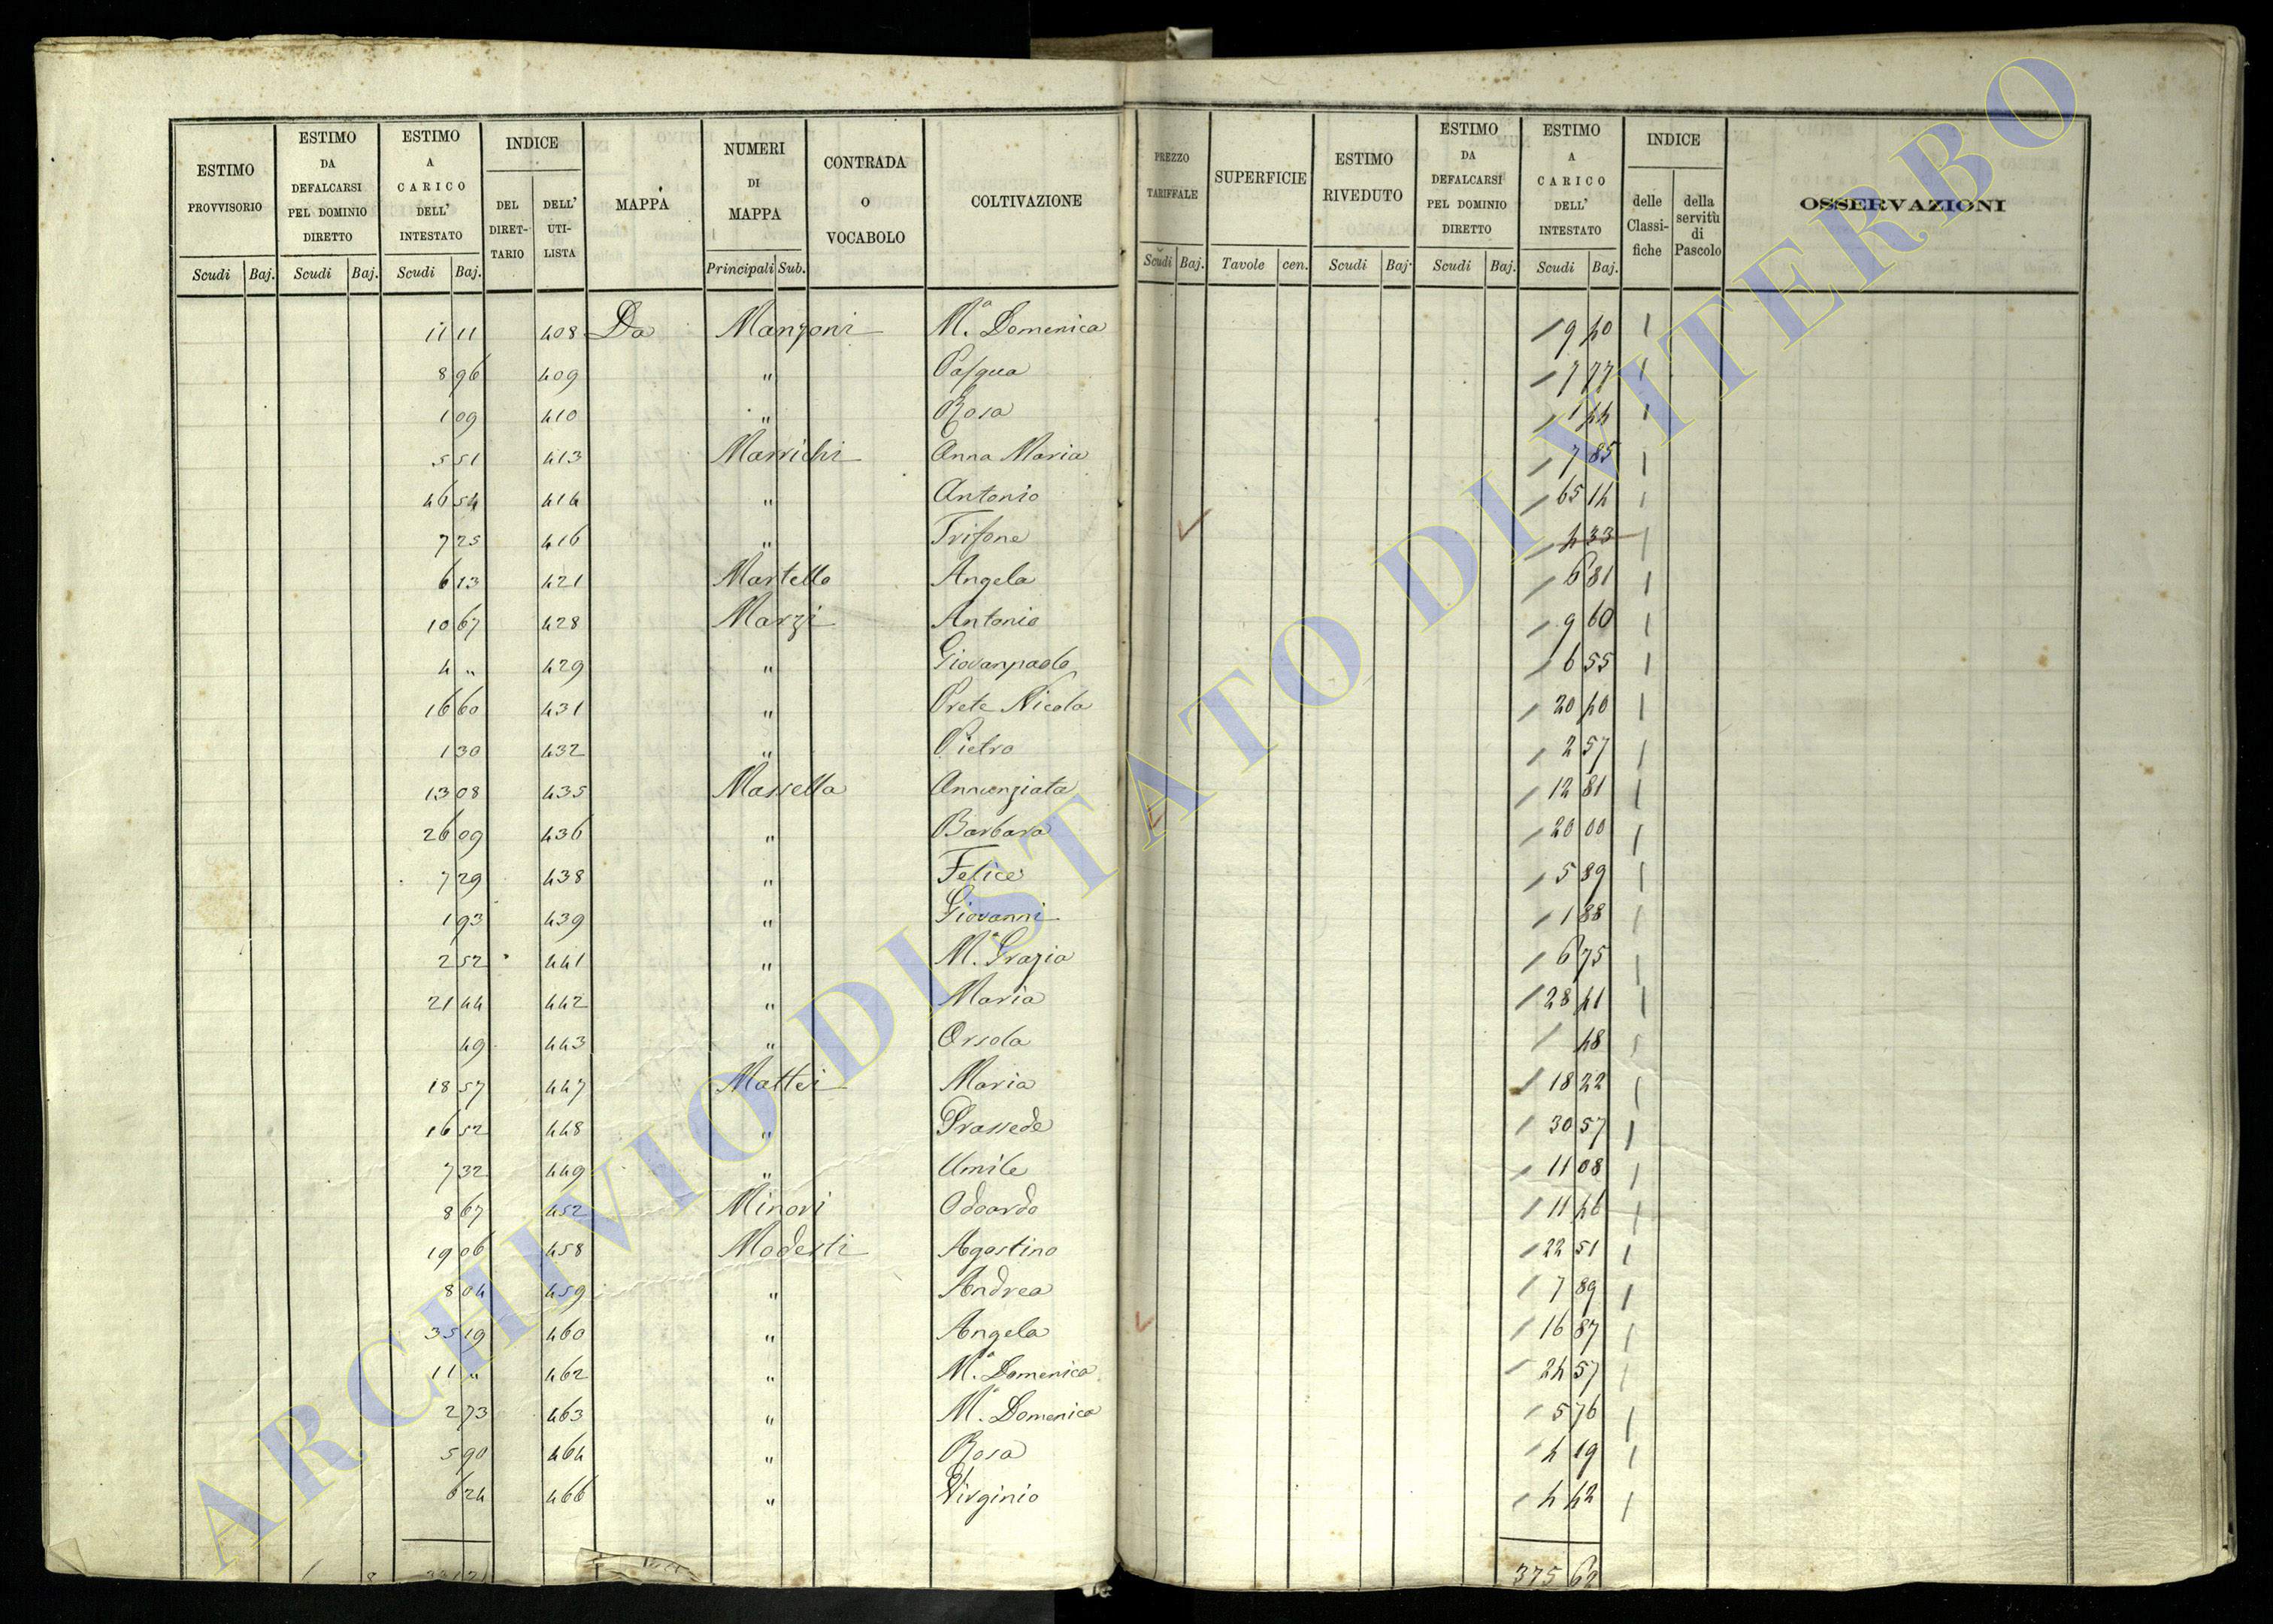 ESTIMO PROVVISORIO
Scudi Baj.
ESTIMO DA DEFALCARSI PEL DOMINIO DIRETTO
Scudi Baj.
ESTIMO A CARICO DELL' INTESTATO
Scudi Baj.
INDICE
DEL DIRET-TARIO
DELL' UTI-LISTA
MAPPA
NUMERI DI MAPPA
Principali Sub.
CONTRADA O VOCABOLO
COLTIVAZIONE
PREZZO TARIFFALE
Scudi Baj.
SUPERFICIE
Tavole cen.
ESTIMO RIVEDUTO
Scudi Baj.
ESTIMO DA DEFALCARSI PEL DOMINIO DIRETTO
Scudi Baj.
ESTIMO A CARICO DELL' INTESTATO
Scudi Baj.
INDICE
delle Classi-fiche
della servitù di Pascolo
OSSERVAZIONI
11 11 408 Da Manzoni Mª Domenica 9 40
8 96 409 " Pasqua 7 77
1 09 410 " Rosa 1 44
5 51 413 Marrichi Anna Maria 7 85
46 54 414 " Antonio 65 14
7 25 416 " Trifone 4 33
6 13 421 Martello Angela 6 81
10 67 428 Marzi Antonio 9 60
4 " 429 " Giovanpaolo 6 55
16 60 431 " Prete Nicola 20 40
1 30 432 " Pietro 2 57
13 08 435 Massella Annunziata 12 81
26 09 436 " Barbara 20 00
7 29 438 " Felice 5 89
1 93 439 " Giovanni 1 88
2 52 441 " Mª Grazia 6 75
21 44 442 " Maria 28 41
49 443 " Orsola 48
18 57 447 Mattei Maria 18 22
16 52 448 " Prassede 30 57
7 32 449 " Umile 11 08
8 67 452 Minori Odoardo 11 46
19 06 458 Modesti Agostino 22 51
8 04 459 " Andrea 7 89
35 19 460 " Angela 16 87
11 " 462 " Mª Domenica 24 57
2 73 463 " Mª Domenica 5 76
5 90 464 " Rosa 4 19
6 24 466 " Virginio 4 42
375 62
ARCHIVIO DI STATO DI VITERBO